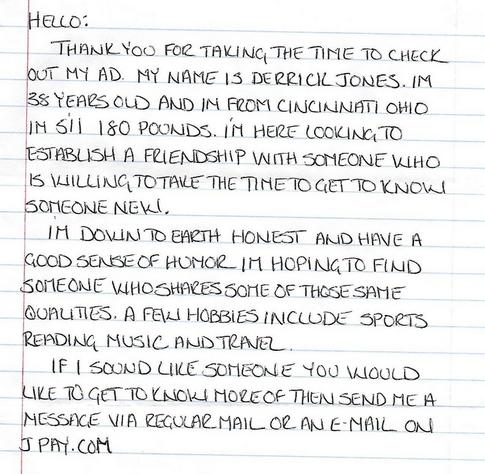 HELLO:
THANK YOU FOR TAKING THE TIME TO CHECK
OUT MY AD. MY NAME IS DERRICK JONES. IM
38 YEARS OLD AND IM FROM CINCINNATI OHIO
IM 5'11 180 POUNDS. I'M HERE LOOKING TO
ESTABLISH A FRIENDSHIP WITH SOMEONE WHO
IS WILLING TO TAKE THE TIME TO GET TO KNOW
SOMEONE NEW.
I'M DOWN TO EARTH HONEST AND HAVE A
GOOD SENSE OF HUMOR IM HOPING TO FIND
SOMEONE WHO SHARES SOME OF THOSE SAME
QUALITIES. A FEW HOBBIES INCLUDE SPORTS
READING MUSIC AND TRAVEL.
IF I SOUND LIKE SOMEONE YOU WOULD
LIKE TO GET TO KNOW MORE OF THEN SEND ME A
MESSAGE VIA REGULAR MAIL OR AN E-MAIL ON
JPAY.COM